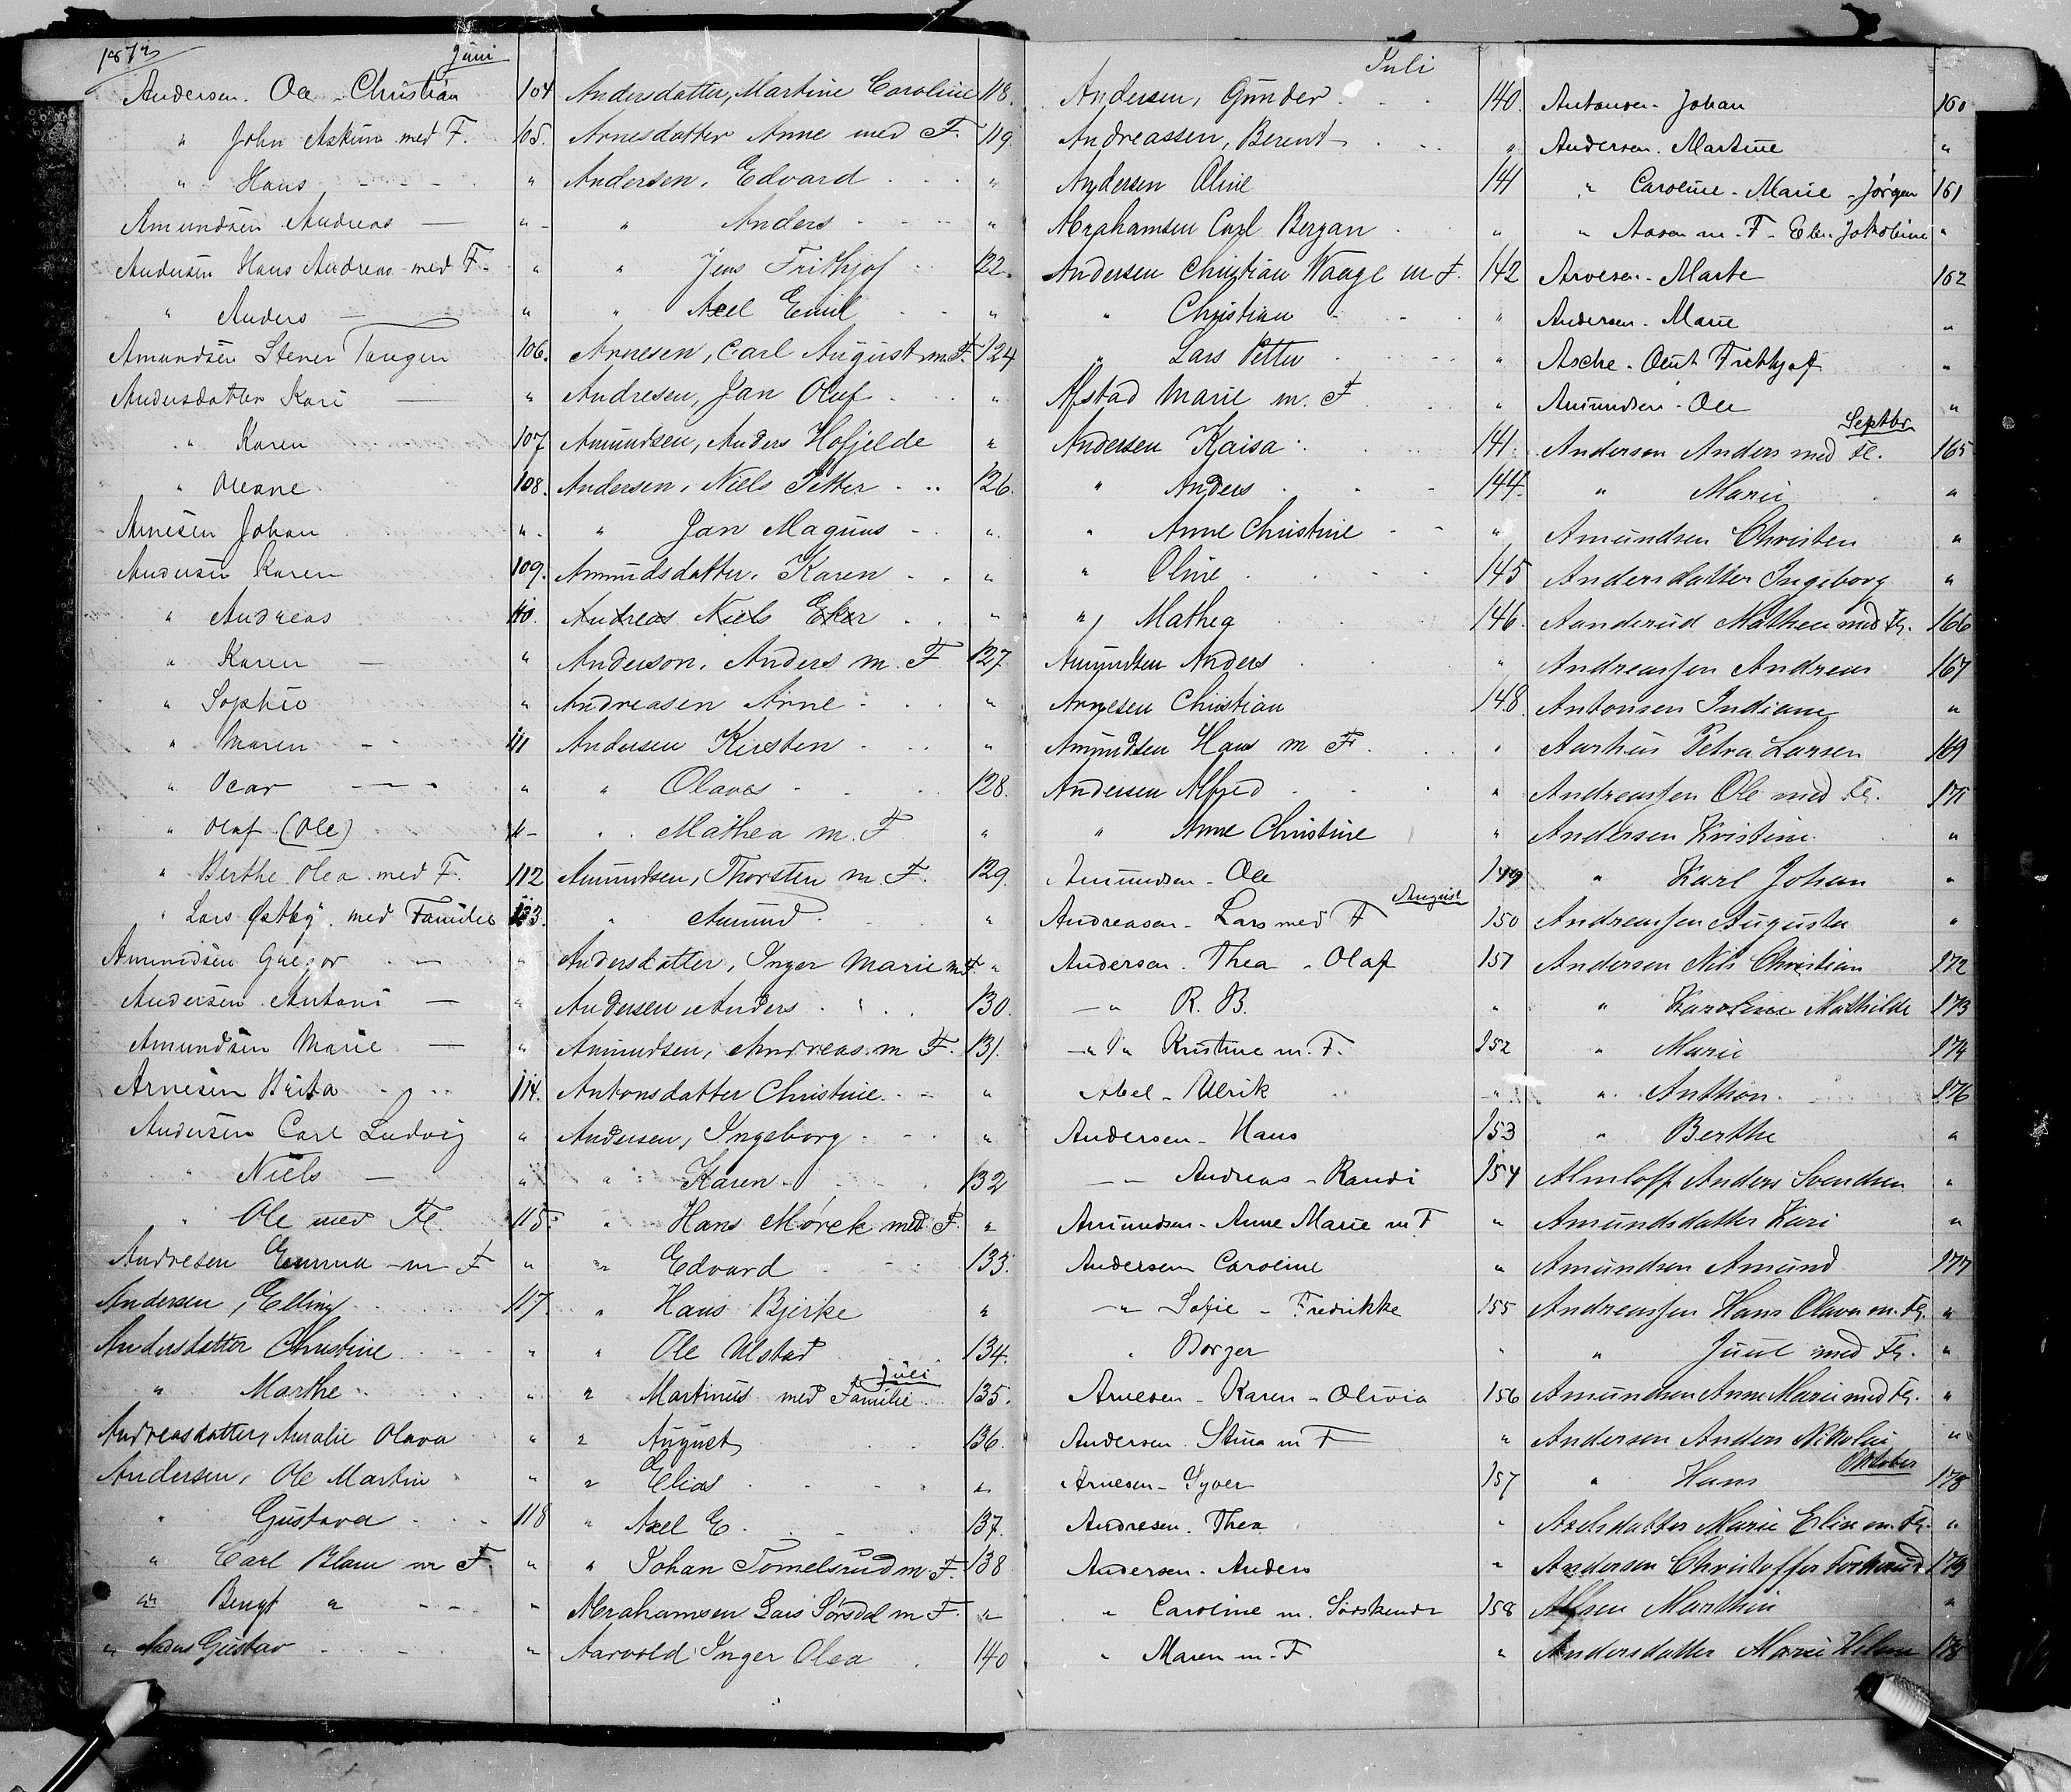 Juni
Andersen. Ole - Christian 104
" John Askim med F. 105.
" Hans "
Amundsen Andreas "
Andersen Hans Andreas med F. "
" Anders "
Amundsen Stener Tangen 106.
Andersdatter Kari "
" Karen 107
" Oleane 108.
Arnesen Johan "
Andersen Karen 109.
" Andreas 110.
" Karen "
" Sophie "
" Maren 111
" Oscar "
" Olaf (Ole) "
" Berthe Olea med F. 112
" Lars Østby med Familie 113.
Amundsen "
Andersen Antoni "
Amundsen Marie "
Arnesen Brita 114.
Andersen Carl Ludvig "
" Niels "
" Ole med Fl. 115.
Andresen Emma m F "
Andersen, Elling 117.
Andersdatter Christine "
" Marthe "
Andreasdatter, Amalie Olava "
Andersen, Ole Martin "
" Gustava 118
" Carl Blam m F "
" Bengt " "
" Gustav "
Andersdatter, Martine Caroline 118.
Arnesdatter Anne med F. 119
Andersen, Edvard "
" Anders "
" Jens Frithjof 122.
" Axel Emil "
Arnesen, Carl August m. F. 124
Andresen, Jan Oluf "
Amundsen, Anders Hofjelde "
Andersen, Niels Petter 126.
" Jan Magnus "
Amundsdatter, Karen "
Andreas Niels Eker "
Anderson, Anders m. F 127
Andreasen Arne "
Andersen Kirsten "
" Olaves 128.
" Mathea m. F "
Amundsen, Thorsten m. F. 129.
" Amund "
Andersdatter, Inger Marie m F "
Andersen Anders 130.
Amundsen, Andreas m F. 131.
Antonsdatter Christine "
Andersen, Ingeborg "
" Karen 132
" Hans Mørck med F. "
" Edvard 133.
" Hans Bjerke "
" Ole Alstad 134.
Juli
" Martinus med Familie 135.
" August 136.
" Elias "
" Axel E. 137.
" Johan Tomelsrud m. F. 138
Abrahamsen Lars Sørsdal m F. "
Aarvold Inger Olea 140
Juli
Andersen, Gunder 140.
Andreassen, Berent "
Andersen Oline 141
Abrahamsen Carl Bergan "
Andersen Christian Waage m F. 142
" Christian "
" Lars Petter "
Afstad Marie m. F "
Andersen Kaisa 141.
" Anders 144.
" Anne Christine "
" Oline 145
" Mathea 146.
Amundsen Anders "
Arnesen Christian 148.
Amundsen Hans m F. "
Andersen Alfred "
" Anne Christine "
Amundsen - Ole 149
August
Andreasen - Lars med F 150
Andersen. Thea - Olaf 151
" R. B. "
" Kristine m. F. 152
Abel - Ulrik "
Andersen - Hans 153
" Andreas - Randi 154
Amundsen - Anne Marie m. F "
Andersen Caroline "
" Sofie - Fredrikke 155
" Borger "
Arnesen - Karen - Olivia 156
Andersen. Stina m F "
Arnesen - Syver 157
Andresen. Thea "
Andersen - Anders "
" Caroline m. Sødskende 158
" Maren m. F "
Antonsen - Johan 160
Andersen. Martine "
" Caroline - Marie - Jørgen 161
" Aasen m. F. "
Arvesen - Marte 162
Andersen - Marie "
Asche - "
Amundsen - Ole "
Septbr
Andersen Anders med Fl. 165
" Marie "
Amundsen Christen "
Andersdatter Ingeborg "
Aanderud Mathea med Fl. 166
Andreassen Andreas 167
Antonsen Indiane "
Aarhus Petra Larsen 169
Andreassen Ole med Fl. 171
Andersen Kristine "
" Karl Johan "
Andreassen Augusta "
Andersen Nils Christian 172
" Karoline Mathilde 173
" Marie 174
" Anthon 176
" Berthe "
Almloff Anders Svendsen "
Amundsdatter Kari "
Amundsen Amund 177
Andreassen Hans Olava m. Fl. "
" Juul med Fl. "
Amundsen Anne Marie med Fl. "
Andersen Anders Nikolai "
Oktober
" Hans 178
Axelsdatter Marie Elin m. Fl. "
Andersen Christoffer 179
Alfsen Marthin "
Andersdatter Marie 178